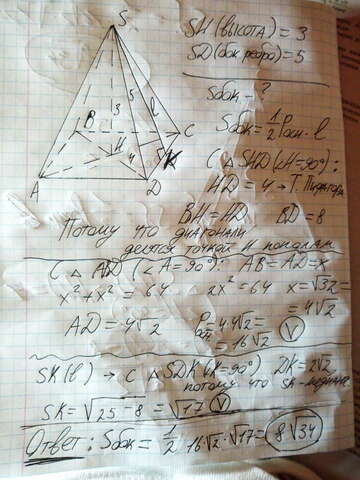 S
SH (высота) = 3
SD (бок ребро) = 5
Sбок - ?
Sбок = 1/2 Pосн · l
5
l
3
B
C
H
4
K
A
D
С △ SHD (∠H=90°):
HD = 4 → Т. Пифагора
BH = HD BD = 8
Потому что диагонали
делятся точкой H пополам
С △ ABD (∠A = 90°): AB = AD = x
x² + x² = 64 2x² = 64 x = √32 =
= 4√2
AD = 4√2 Pосн = 4·4√2 =
= 16√2 V
SK (l) → С △ SDK (K=90°) DK = 2√2
потому что SK - медиана
SK = √25-8 = √17 V
Ответ: Sбок = 1/2 16√2 · √17 = 8√34